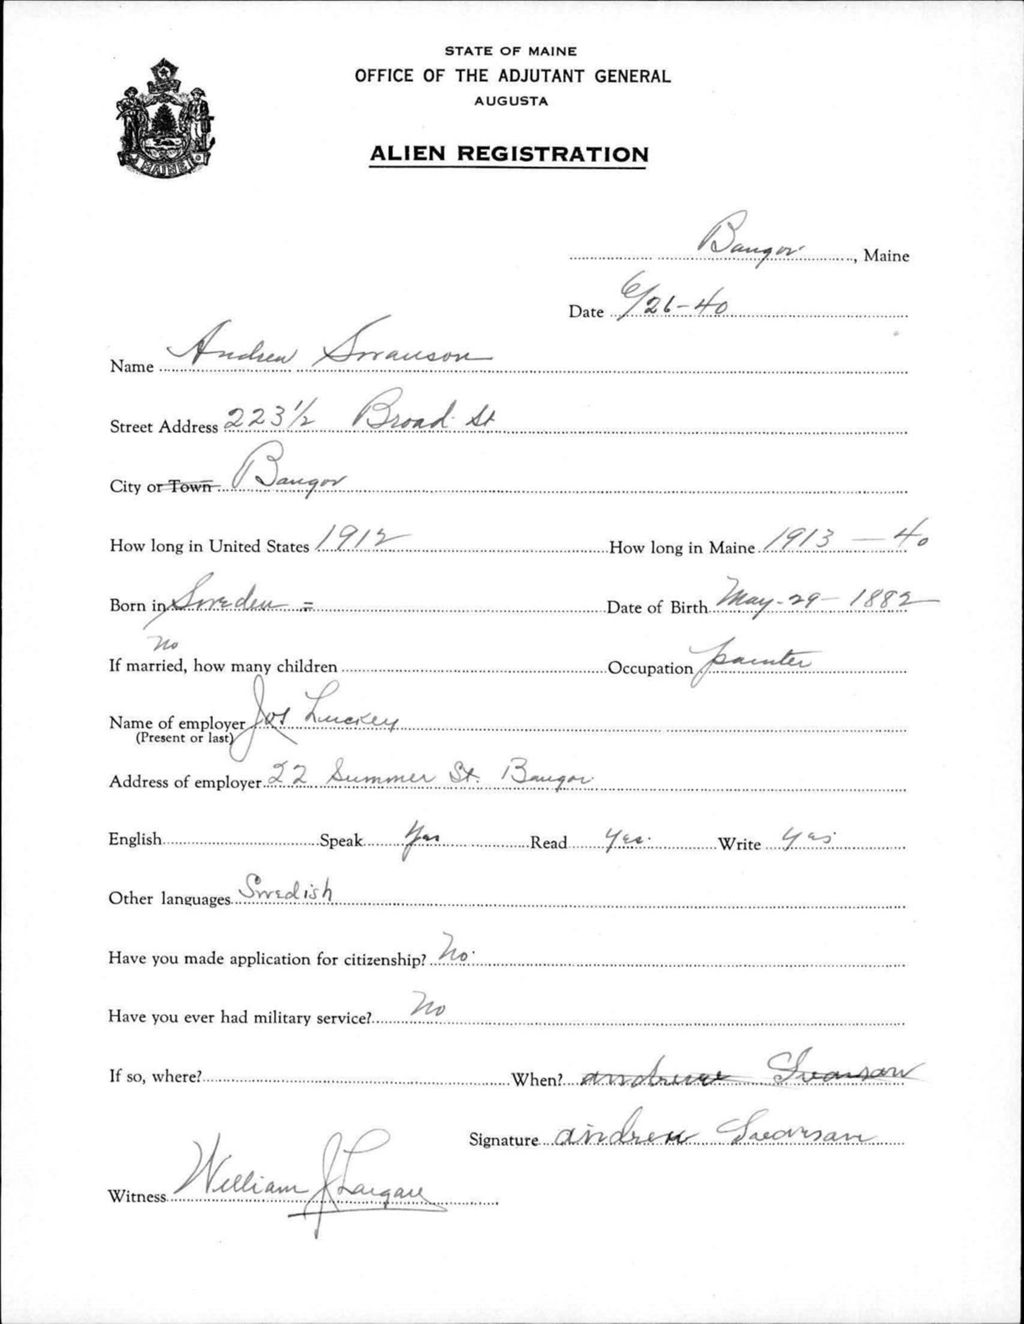 STATE OF MAINE
OFFICE OF THE ADJUTANT GENERAL
AUGUSTA
ALIEN REGISTRATION
MAINE
Bangor, Maine
Date 6/26-40
Name Andrew Swanson
Street Address 223 1/2 Broad St
City or Town Bangor
How long in United States 1912 How long in Maine 1913 - 40
Born in Sweden = Date of Birth May-29-1882
no
If married, how many children Occupation painter
Name of employer Jos Luckey
(Present or last)
Address of employer 22 Summer St. Bangor
English Speak Yes Read Yes. Write Yes
Other languages Swedish
Have you made application for citizenship? No.
Have you ever had military service? No
If so, where? When? andrew Swanson
Signature andrew Swanson
Witness William J